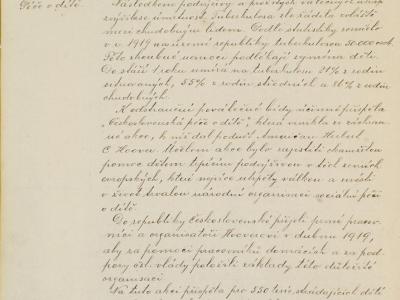 Péče o dítě.
Následkem podvýživy a prožitých válečných útrap
zvýšila se úmrtnost. Tuberkulosa zle řádila zvláště
mezi chudobným lidem. Podle statistiky zemřelo
v r. 1919 na území republiky tuberkulosou 50.000 osob.
Této zhoubné nemoci podléhají zejména děti.
Do stáří 1 roku umírá na tuberkulosu 21% z rodin
situovaných, 55% z rodin středních a 86% z rodin
chudobných.
K odstranění poválečné bídy účinně přispěla
„Československá péče o dítě", která vznikla ze záchran-
né akce, k níž dal podnět Američan Herbert
C. Hoover. Účelem akce bylo zajistiti okamžitou
pomoc dětem trpícím podvýživou v těch zemích
evropských, které nejvíce utrpěly válkou a uvésti
v život trvalou národní organisaci sociální péče
o dítě.
Do republiky Československé přijeli první pracov-
níci a organisátoři Hooverovi v dubnu 1919,
aby za pomoci pracovníků domácích a za pod-
pory čsl. vlády položili základy této důležité
organisaci.
Na tuto akci přispěla pro 550 tisíc strádajících dětí